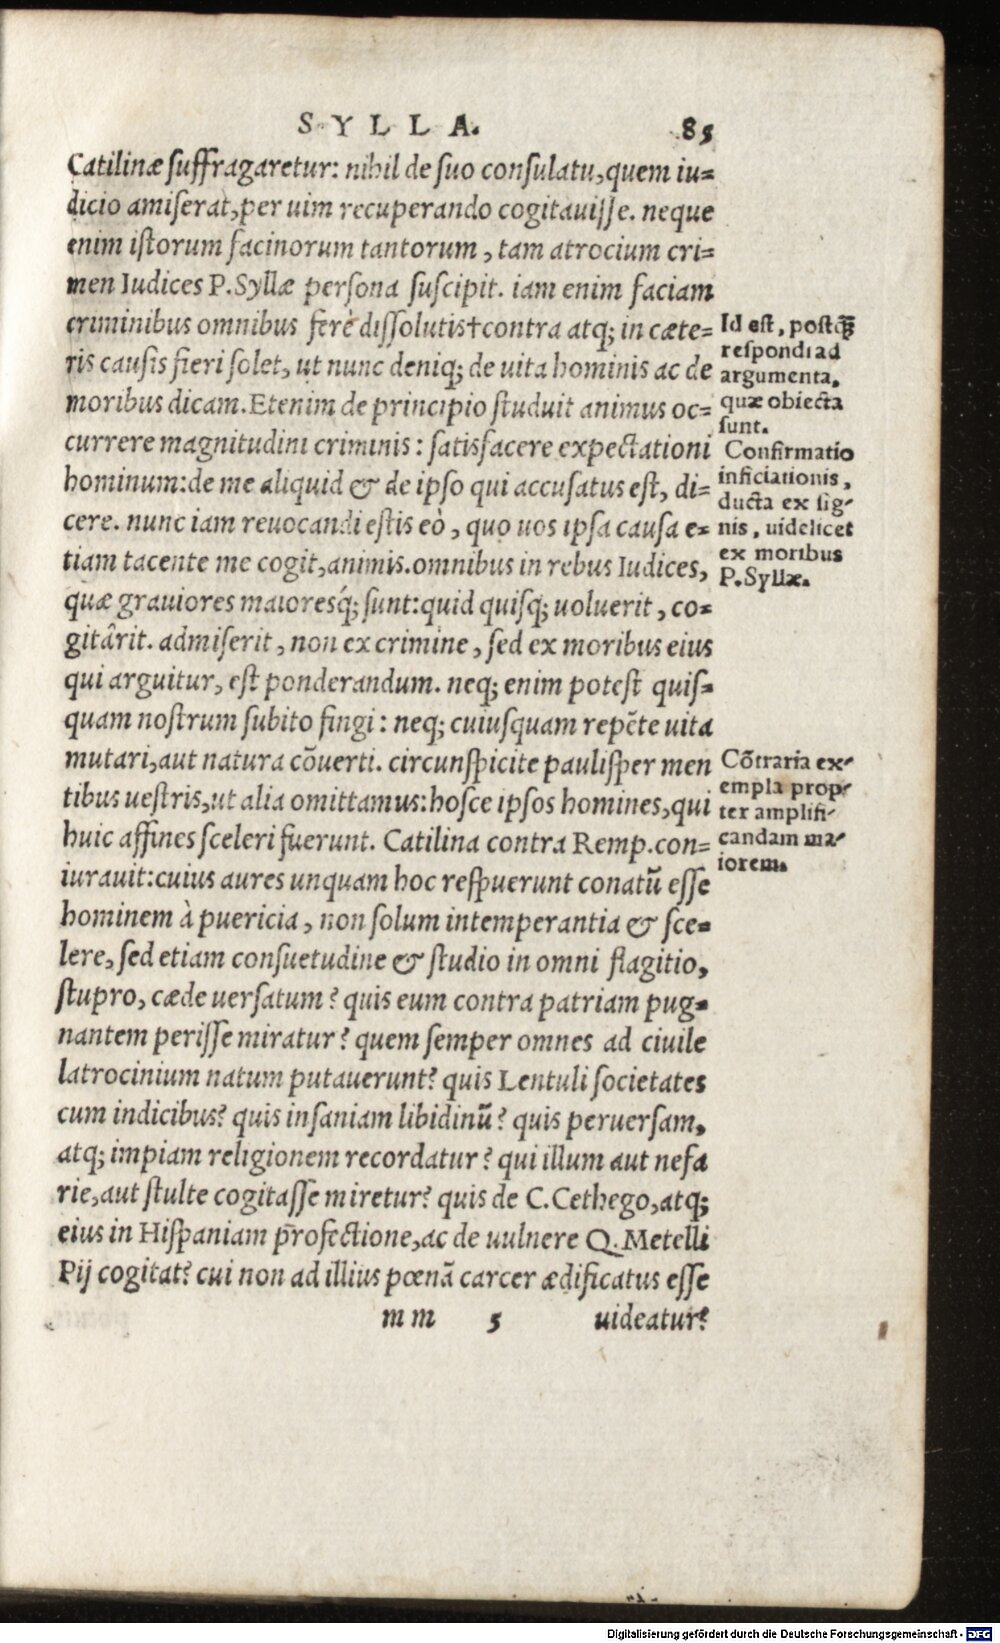 SYLLA. 85
Catilinæ suffragaretur: nihil de suo consulatu, quem iu=
dicio amiserat, per uim recuperando cogitauisse. neque
enim istorum facinorum tantorum, tam atrocium cri=
men Iudices P. Syllæ persona suscipit. iam enim faciam
criminibus omnibus ferè dissolutis† contra atq; in cæte=
ris causis fieri solet, ut nunc deniq; de uita hominis ac de
moribus dicam. Etenim de principio studuit animus oc=
currere magnitudini criminis: satisfacere expectationi
hominum: de me aliquid & de ipso qui accusatus est, di=
cere. nunc iam reuocandi estis eò, quo uos ipsa causa e=
tiam tacente me cogit, animis. omnibus in rebus Iudices,
quæ grauiores maioresq́; sunt: quid quisq; uoluerit, co=
gitârit. admiserit, non ex crimine, sed ex moribus eius
qui arguitur, est ponderandum. neq; enim potest quis=
quam nostrum subito fingi: neq; cuiusquam repẽte uita
mutari, aut natura cõuerti. circunspicite paulisper men
tibus uestris, ut alia omittamus: hosce ipsos homines, qui
huic affines sceleri fuerunt. Catilina contra Remp. con=
iurauit: cuius aures unquam hoc respuerunt conatũ esse
hominem à puericia, non solum intemperantia & sce=
lere, sed etiam consuetudine & studio in omni flagitio,
stupro, cæde uersatum? quis eum contra patriam pug=
nantem perisse miratur? quem semper omnes ad ciuile
latrocinium natum putauerunt? quis Lentuli societates
cum indicibus? quis insaniam libidinũ? quis peruersam,
atq; impiam religionem recordatur? qui illum aut nefa
rie, aut stulte cogitasse miretur? quis de C. Cethego, atq;
eius in Hispaniam p̄rofectione, ac de uulnere Q. Metelli
Pij cogitat? cui non ad illius pœnã carcer ædificatus esse
mm 5 uideatur?
Id est, postq̃;
respondi ad
argumenta,
quæ obiecta
sunt.
Confirmatio
inficiationis,
ducta ex sig-
nis, uidelicet
ex moribus
P. Syllæ.
Cõtraria ex-
empla prop-
ter amplifi-
candam ma-
iorem.
Digitalisierung gefördert durch die Deutsche Forschungsgemeinschaft - DFG